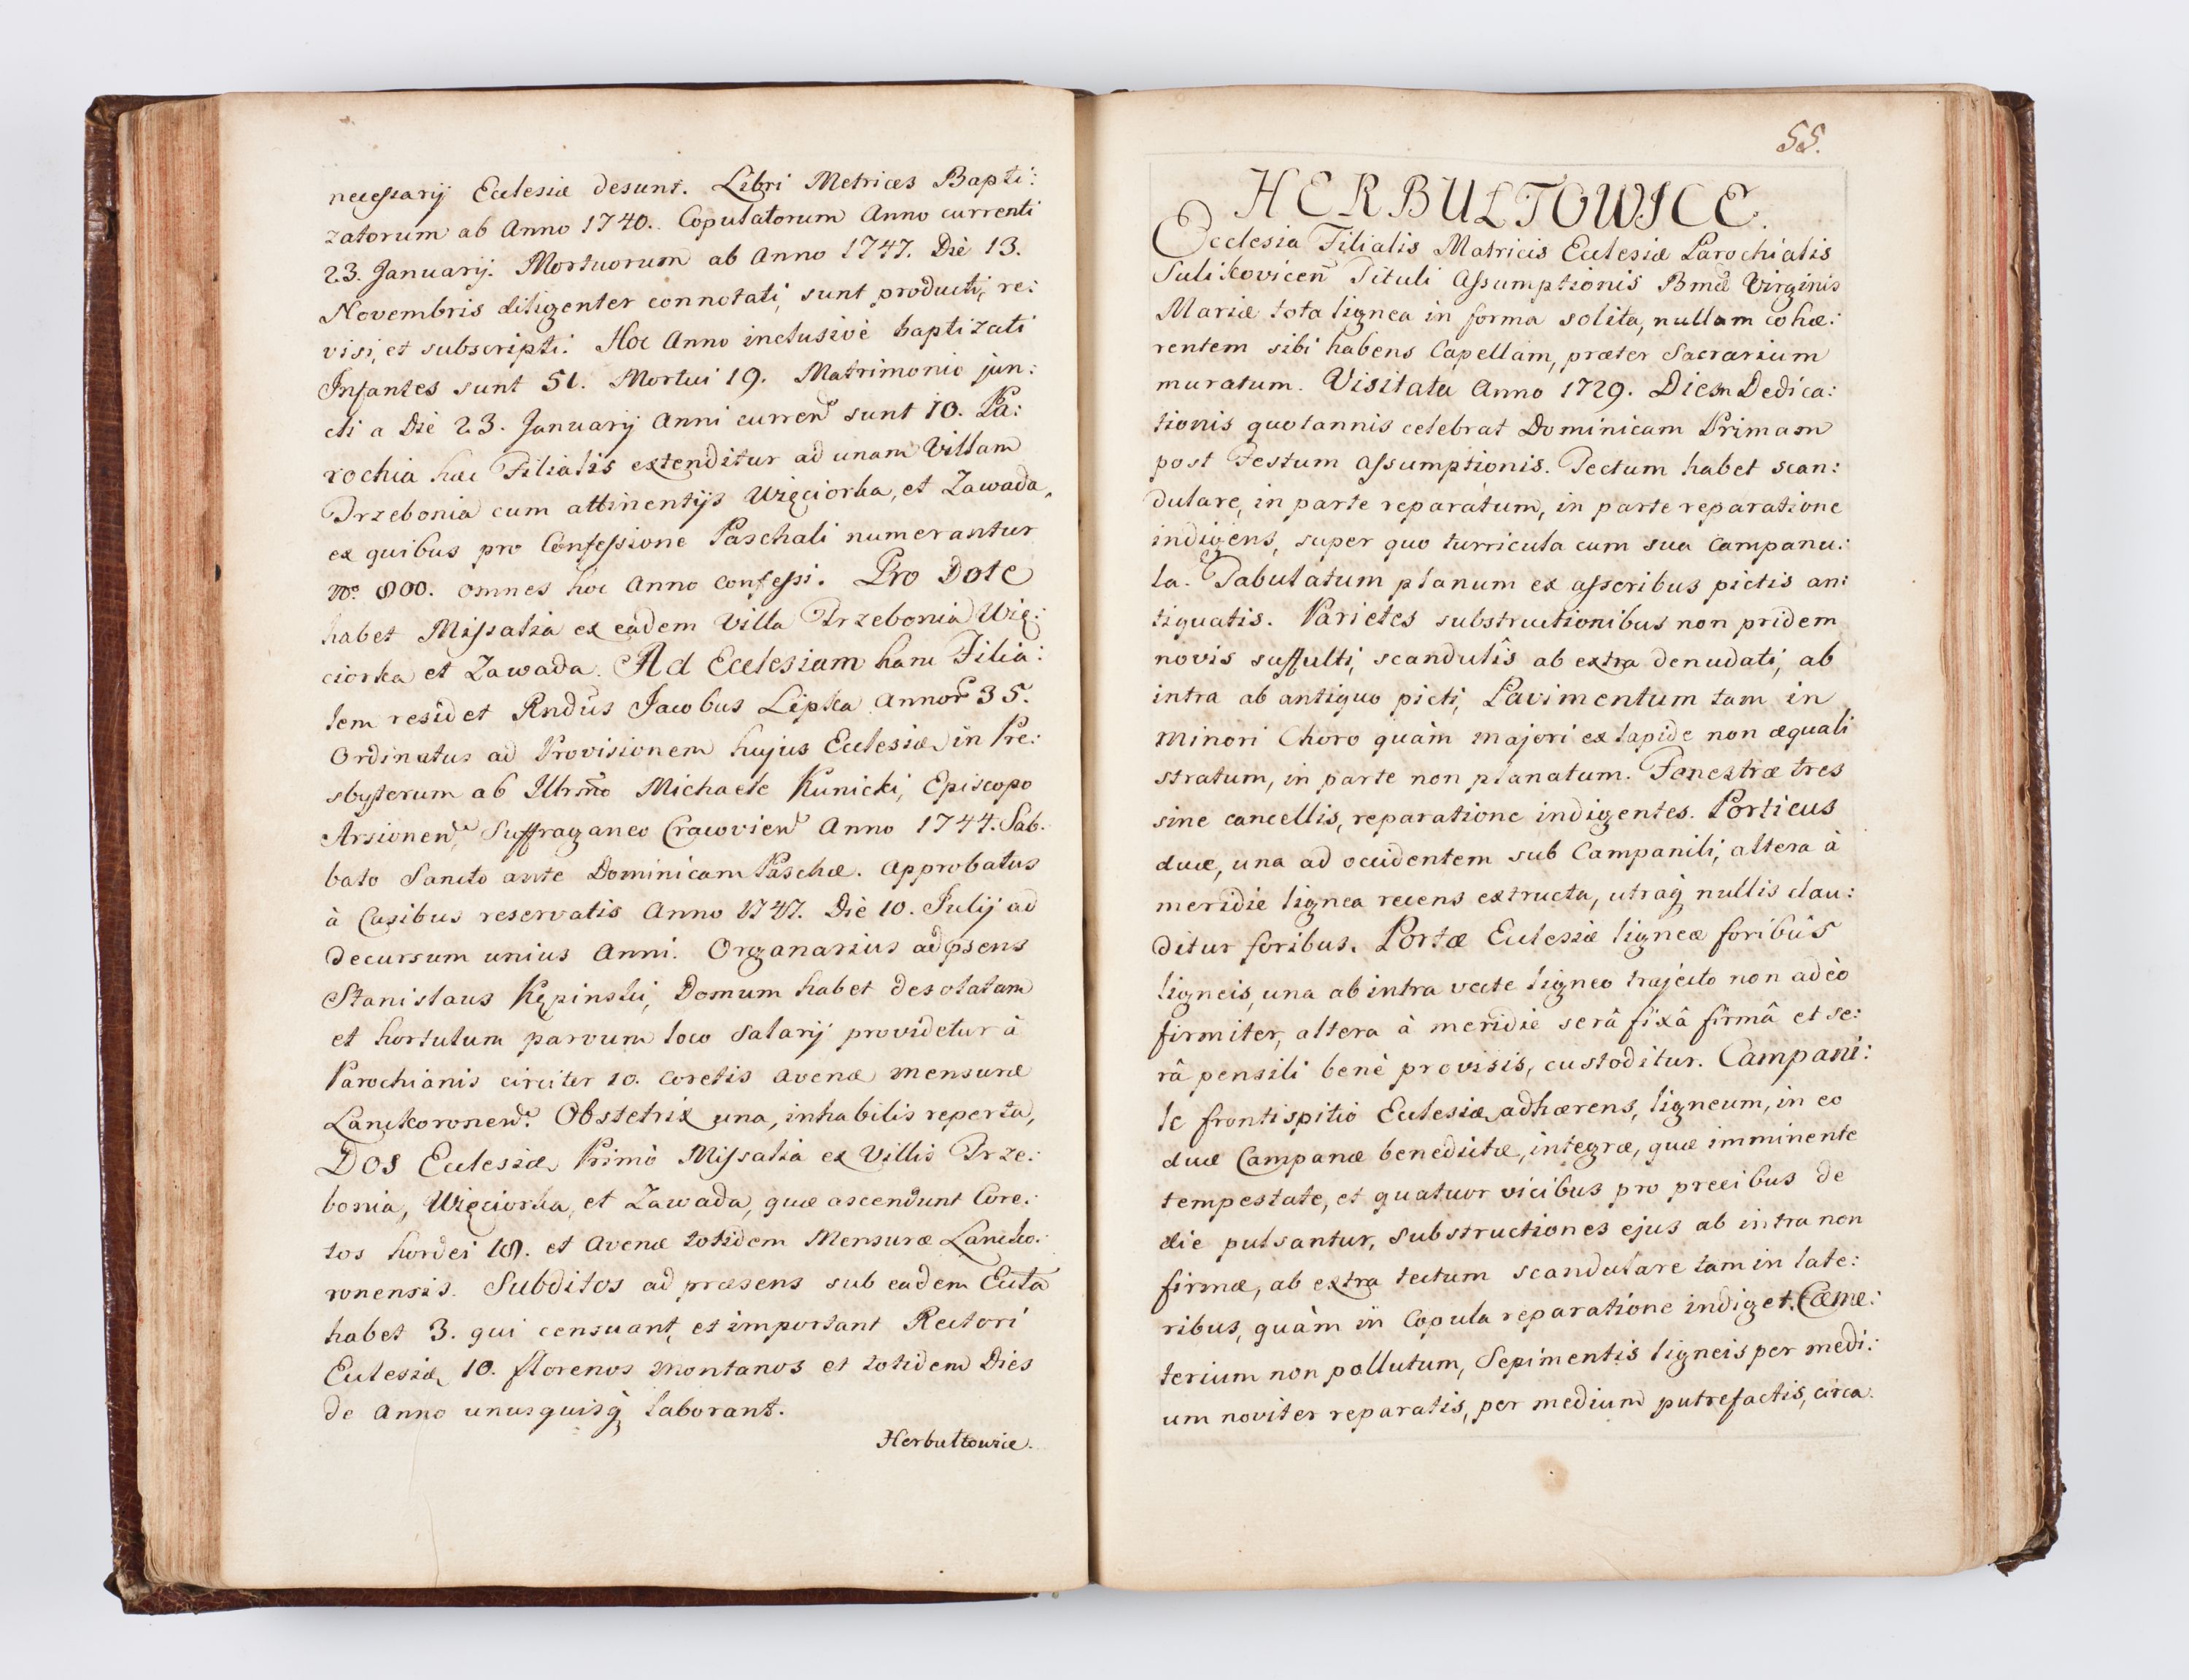 necessarij Ecclesiæ desunt. Libri Metrices Bapti:
zatorum ab Anno 1740. Copulatorum Anno currenti
23. Januarij. Mortuorum ab Anno 1747. Diè 13.
Novembris diligenter connotati, sunt producti, re:
visi, et subscripti. Hoc Anno inclusivè baptizati
Infantes sunt 51. Mortui 19. Matrimonio jun:
cti a Diè 23. Januarij Anni curren̄ sunt 10. Pa:
rochia hæc Filialis extenditur ad unam Villam
Trzebonia cum attinentijs Więciorka, et Zawada,
ex quibus pro Confessione Paschali numerantur
No. 800. omnes hoc Anno confessi. Pro Dote
habet Missalia ex eadem Villa Trzebonia Wię:
ciorka et Zawada. Ad Ecclesiam hanc Filia:
lem residet Rndūs Jacobus Lipka Annor 35.
Ordinatus ad Provisionem hujus Ecclesiæ in Pre:
sbyterum ab Illrm̄o Michaele Kunicki, Episcopo
Arsionen̄, Suffraganeo Cracovien̄ Anno 1744. Sab.
bato Sancto ante Dominicam Paschæ. Approbatus
à Casibus reservatis Anno 1747. Diè 10. Julij ad
decursum unius Anni. Organarius ad p̄sens
Stanislaus Kępinski, Domum habet desolatam
et hortulum parvum loco Salarij providetur à
Parochianis circiter 10. coretis avenæ mensuræ
Lanckoronen̄. Obstetrix una, inhabilis reperta,
Dos Ecclesiæ, Primò Missalia ex Villis Trze:
bonia, Więciorka, et Zawada, quæ ascendunt Core:
tos hordei 18. et Avenæ totidem Mensuræ Lancko:
ronensis. Subditos ad præsens sub eadem Eccl̄a
habet 3. qui censuant, et important Rectori
Ecclesiæ 10. florenos montanos et totidem Dies
de Anno unusquisq̨ laborant.
Herbultowice.
55.
HERBULTOWICE.
Ecclesia Filialis Matricis Ecclesiæ Parochialis
Sulikovicen̄ Tituli Assumptionis Bmǣ Virginis
Mariæ tota lignea in forma solita, nullam cohæ:
rentem sibi habens Capellam, præter Sacrarium
muratum. Visitata Anno 1729. Diem Dedica:
tionis quotannis celebrat Dominicam Primam
post Festum Assumptionis. Tectum habet scan:
dulare, in parte reparatum, in parte reparatione
indigens, super quo turricula cum sua Campanu:
la. Tabulatum planum ex asseribus pictis an:
tiquatis. Parietes substructionibus non pridem
novis suffulti, scandulîs ab extra denudati, ab
intra ab antiquo picti, Pavimentum tam in
minori Choro quàm majori ex lapide non æquali
stratum, in parte non planatum. Fenestræ tres
sine cancellis, reparatione indigentes. Porticus
duæ, una ad occidentem sub Campanili, altera à
meridie lignea recens extructa, utraq̨ nullis clau:
ditur foribus. Portæ Ecclesiæ ligneæ foribûs
ligneis, una ab intra vecte ligneo trajecto non adeò
firmiter, altera à meridie serâ fixâ firmâ et se:
râ pensili benè provisis, custoditur. Campani:
le frontispitio Ecclesiæ adhærens, ligneum, in eo
duæ Campanæ benedictæ, integræ, quæ imminente
tempestate, et quatuor vicibus pro precibus de
die pulsantur, substructiones ejus ab intra non
firmæ, ab extra tectum scandulare tam in late:
ribus, quàm in Copula reparatione indiget. Cæme:
terium non pollutum, Sepimentis ligneis per medi:
um noviter reparatis, per medium putrefactis, circa